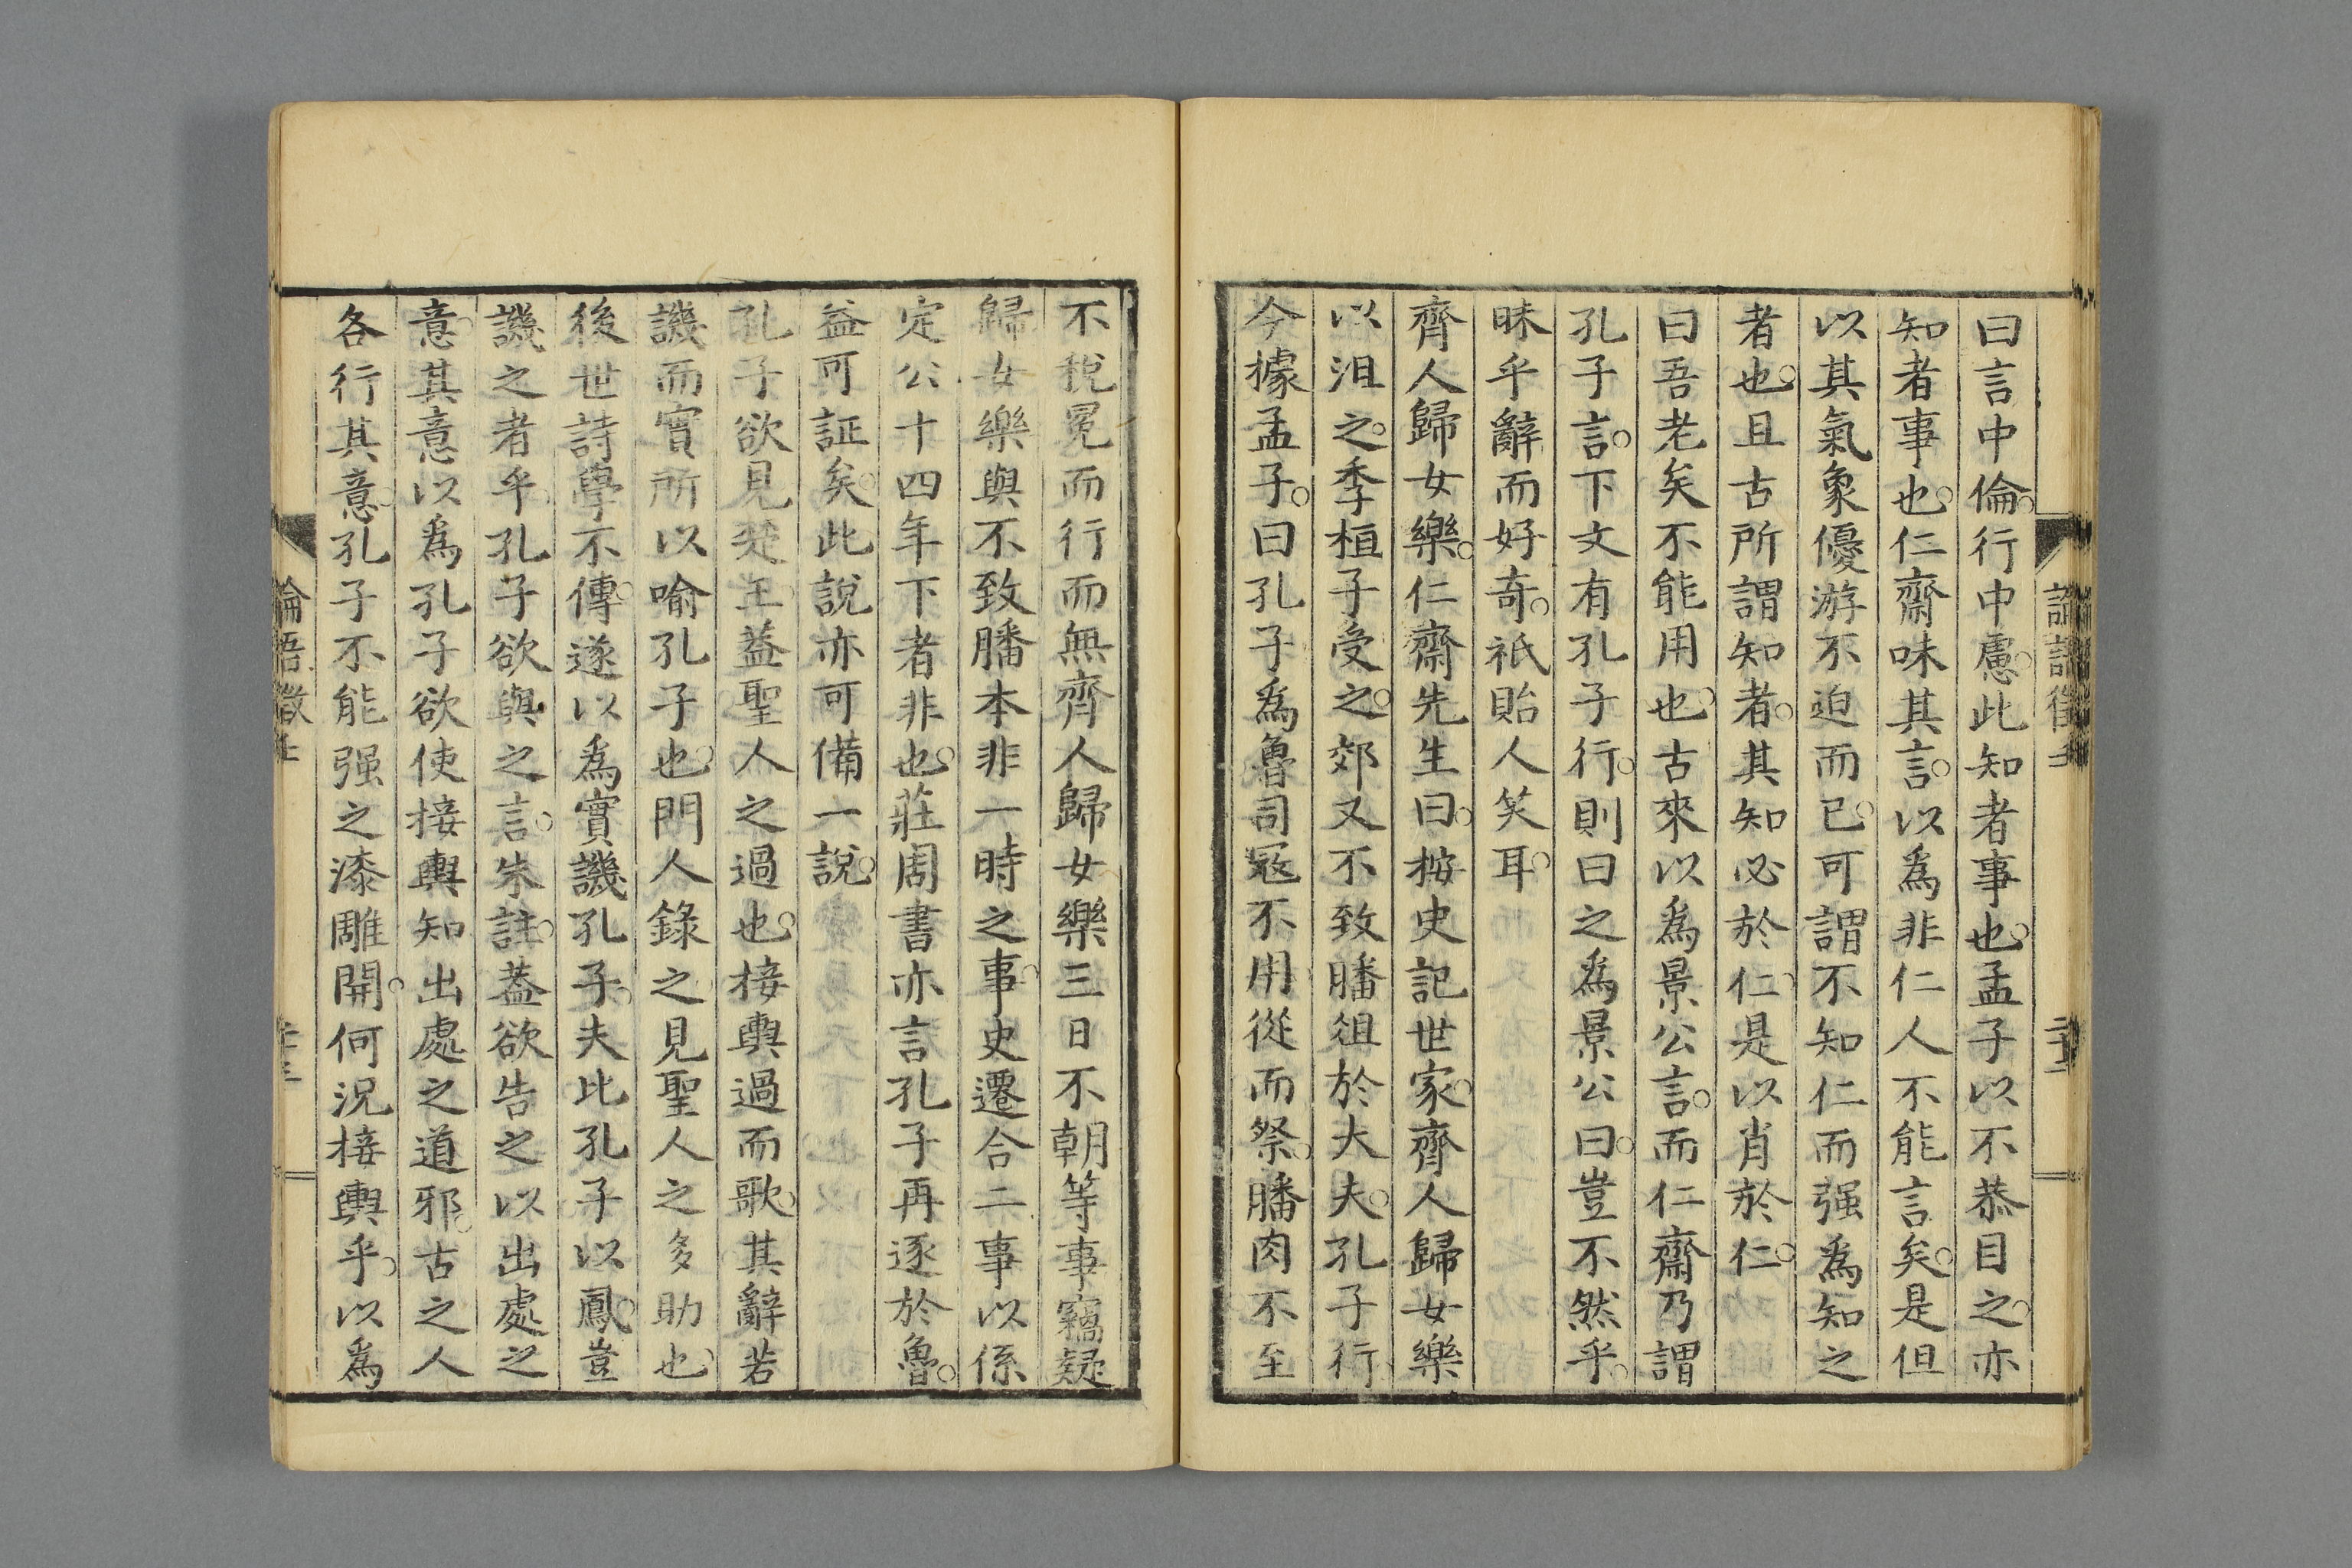 曰言中倫。行中慮。此知者事也。孟子以不恭目之。亦
知者事也。仁齋味其言。以爲非仁人不能言矣。是但
以其氣象優游不迫而已。可謂不知仁而强爲知之
者也。且古所謂知者。其知必於仁。是以肖於仁。
曰吾老矣不能用也。古來以爲景公言。而仁齋乃謂
孔子言。下文有孔子行。則曰之爲景公曰。豈不然乎。
昧乎辭而好奇。祇貽人笑耳。
齊人歸女樂。仁齋先生曰。桉史記世家。齊人歸女樂
以沮之。季桓子受之。郊又不致膰俎於大夫。孔子行
今據孟子。曰孔子爲魯司冦不用從而祭。膰肉不至
不稅冕而行而無齊人歸女樂三日不朝等事竊疑
歸女樂與不致膰本非一時之事。史遷合二事以係
定公十四年下者非也。莊周書亦言孔子再逐於魯。
益可証矣。此說亦可備一說。
孔子欲見楚王。蓋聖人之過也。接輿過而歌。其辭若
譏而實所以喻孔子也。門人錄之見聖人之多助也。
後世詩學不傳。遂以爲實譏孔子。夫比孔子以鳳。豈
譏之者乎。孔子欲與之言。朱註。蓋欲告之以出處之
意。其意以爲孔子欲使接輿知出處之道邪。古之人
各行其意。孔子不能强之漆雕開。何況接輿乎。以爲
論語徵壬